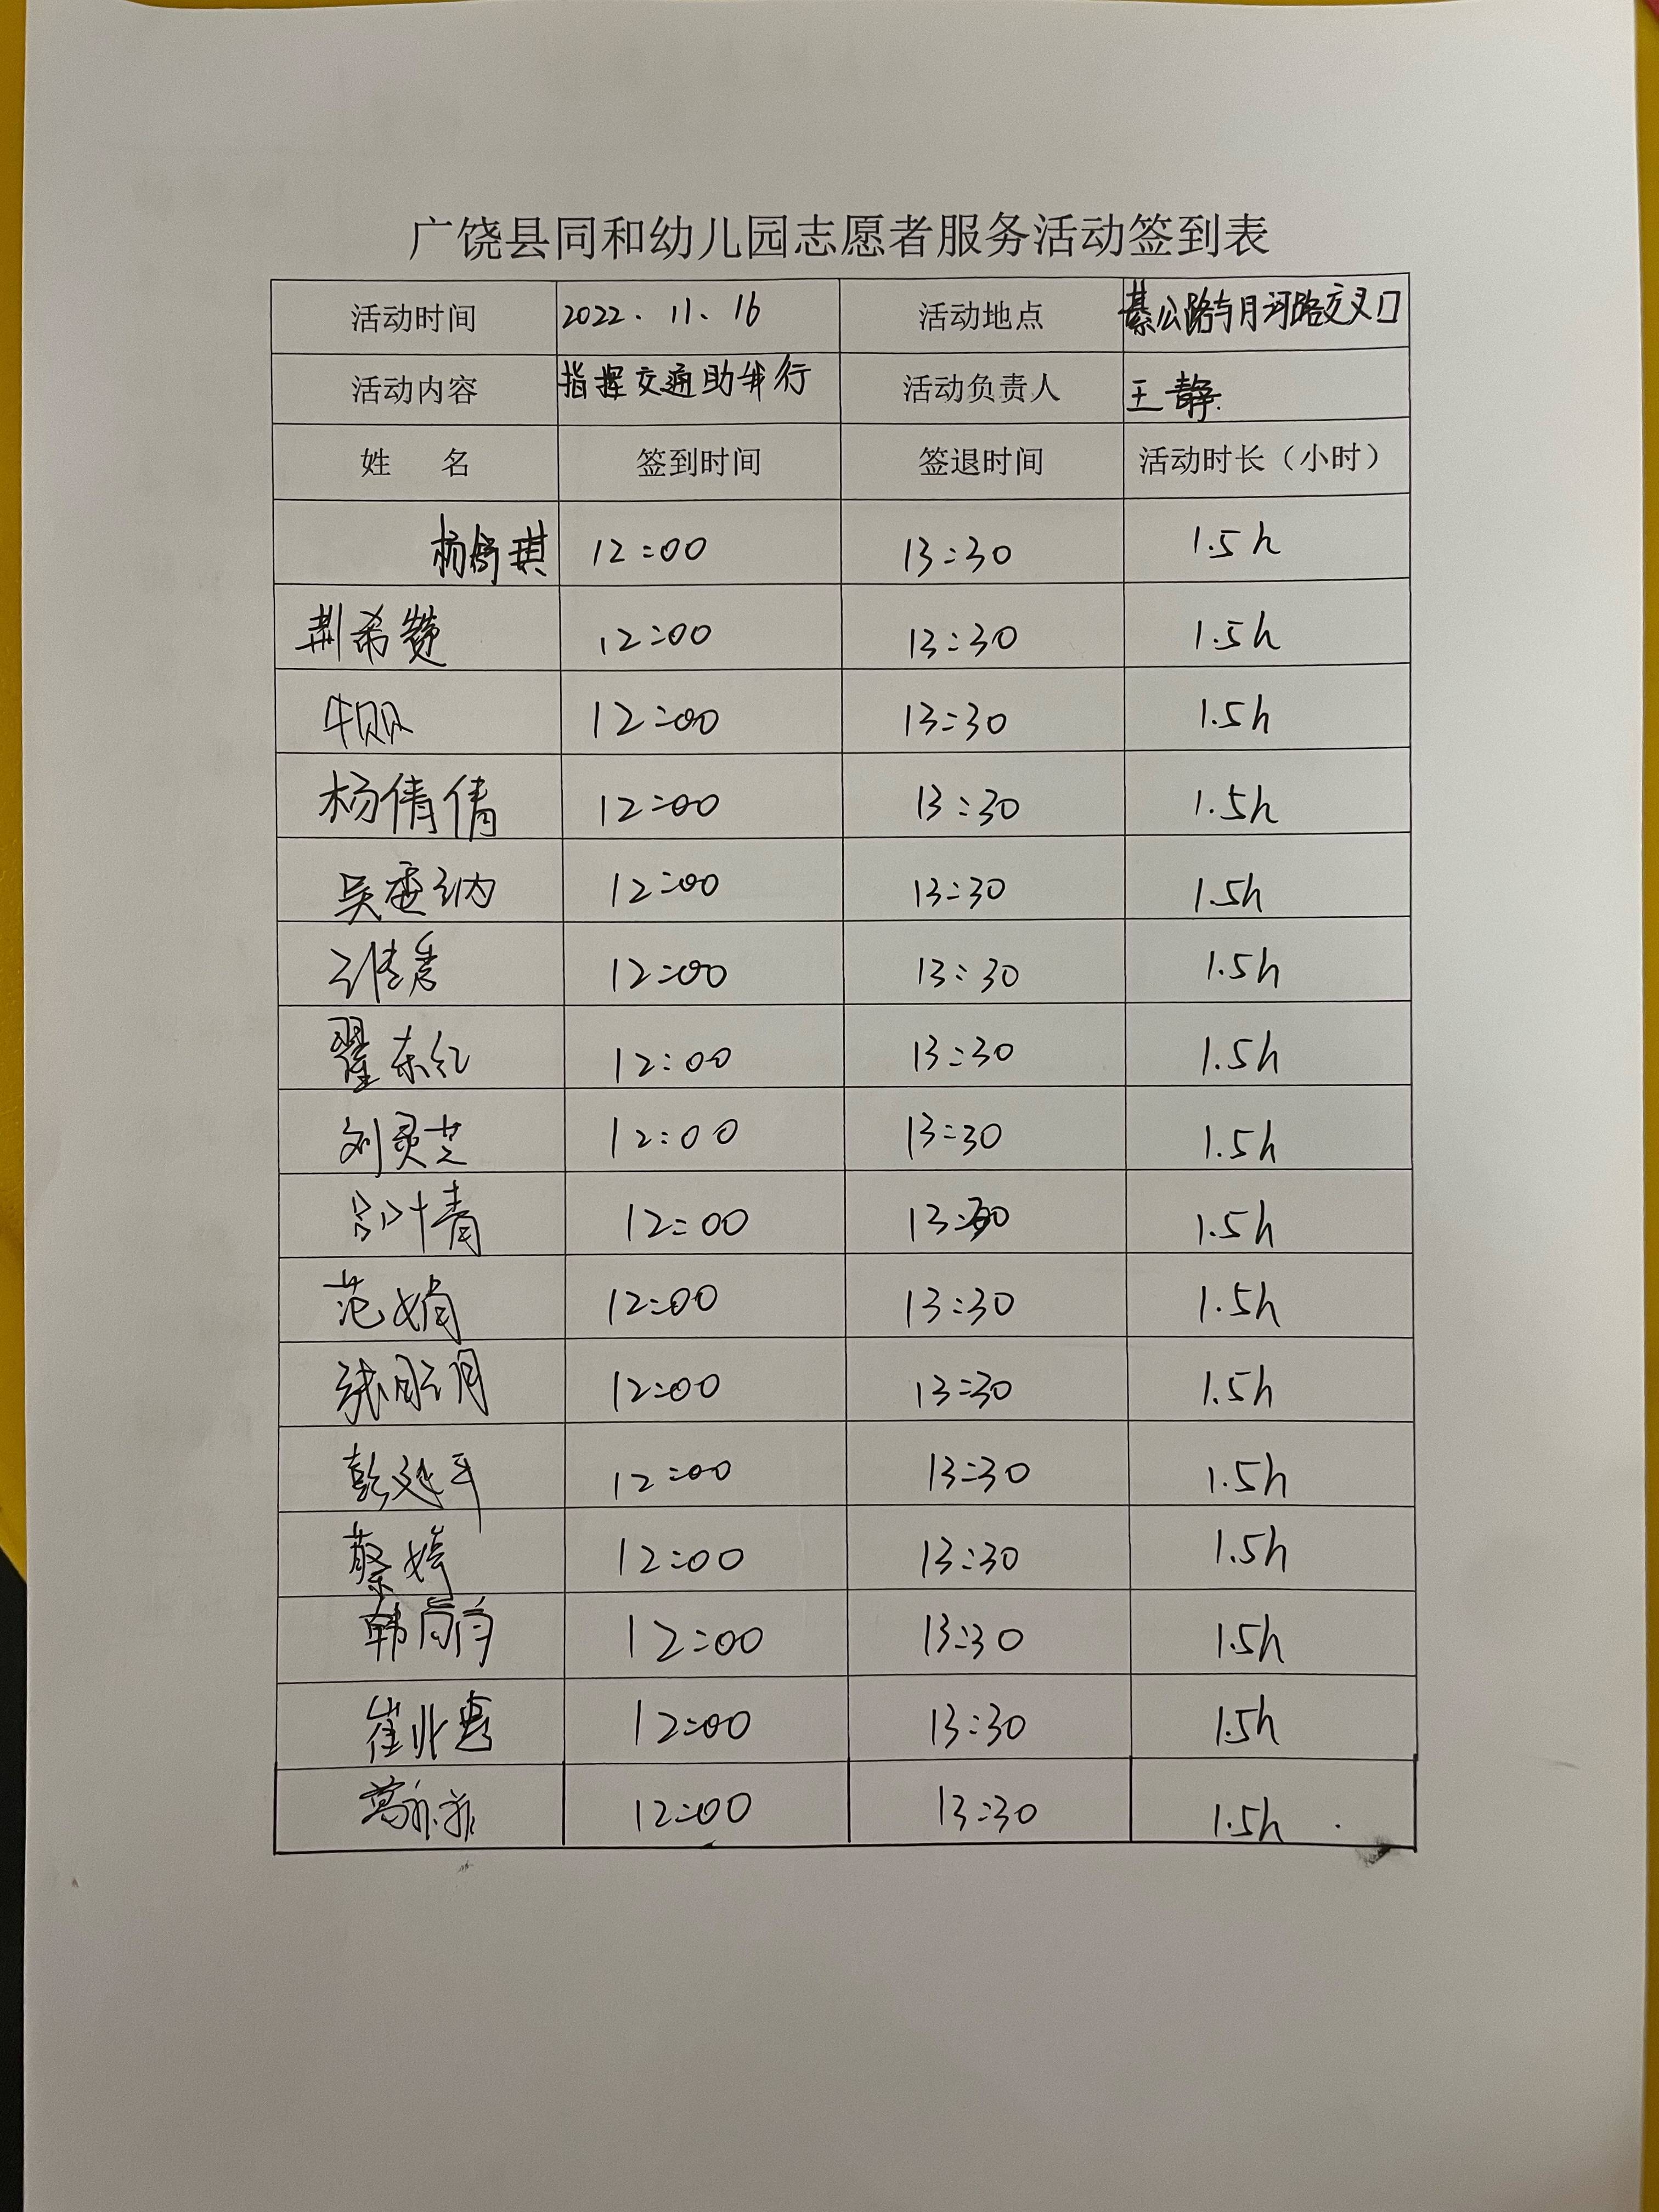 广饶县同和幼儿园志愿者服务活动签到表
活动时间 2022.11.16 活动地点 綦公路与月河路交叉口
活动内容 指挥交通助出行 活动负责人 王静
姓 名 签到时间 签退时间 活动时长（小时）
杨舒琪 12:00 13:30 1.5h
荆希赞 12:00 13:30 1.5h
牛贝贝 12:00 13:30 1.5h
杨倩倩 12:00 13:30 1.5h
吴亚纳 12:00 13:30 1.5h
12:00 13:30 1.5h
翟东红 12:00 13:30 1.5h
刘灵芝 12:00 13:30 1.5h
12:00 13:30 1.5h
范娟 12:00 13:30 1.5h
张明月 12:00 13:30 1.5h
彭延平 12:00 13:30 1.5h
蔡婷 12:00 13:30 1.5h
韩 12:00 13:30 1.5h
崔北 12:00 13:30 1.5h
葛 12:00 13:30 1.5h